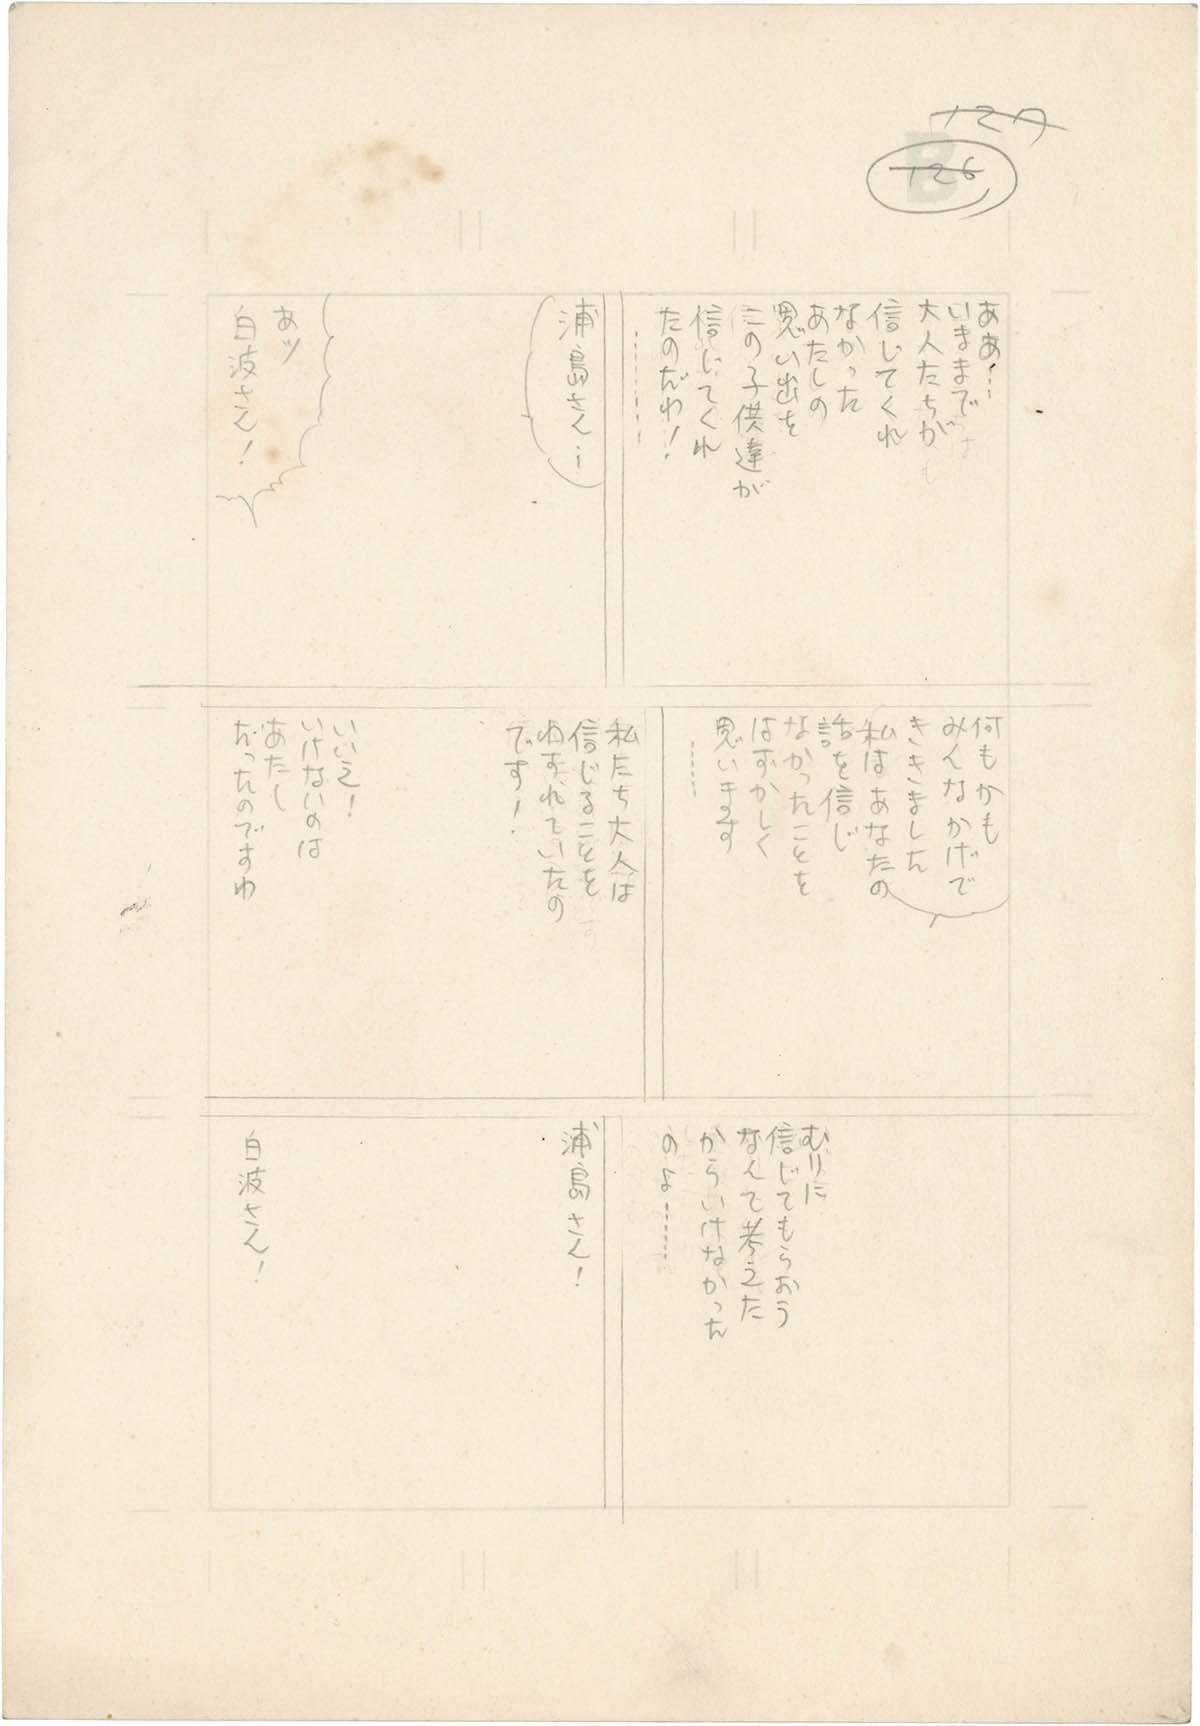 127
126
B
ああ…
いままで
大人たちが
信じてくれ
なかった
あたしの
思い出を
この子供達が
信じてくれ
たのだわ!
………
浦島さん…
あッ
白波さん!
何もかも
みんなかげで
ききました
私はあなたの
話を信じ
なかったことを
はずかしく
思います
……
私たち大人は
信じることを
わすれていたの
です!
いいえ!
いけないのは
あたし
だったのですわ
むりに
信じてもらおう
なんて考えた
からいけなかった
のよ……
浦島さん!
白波さん!